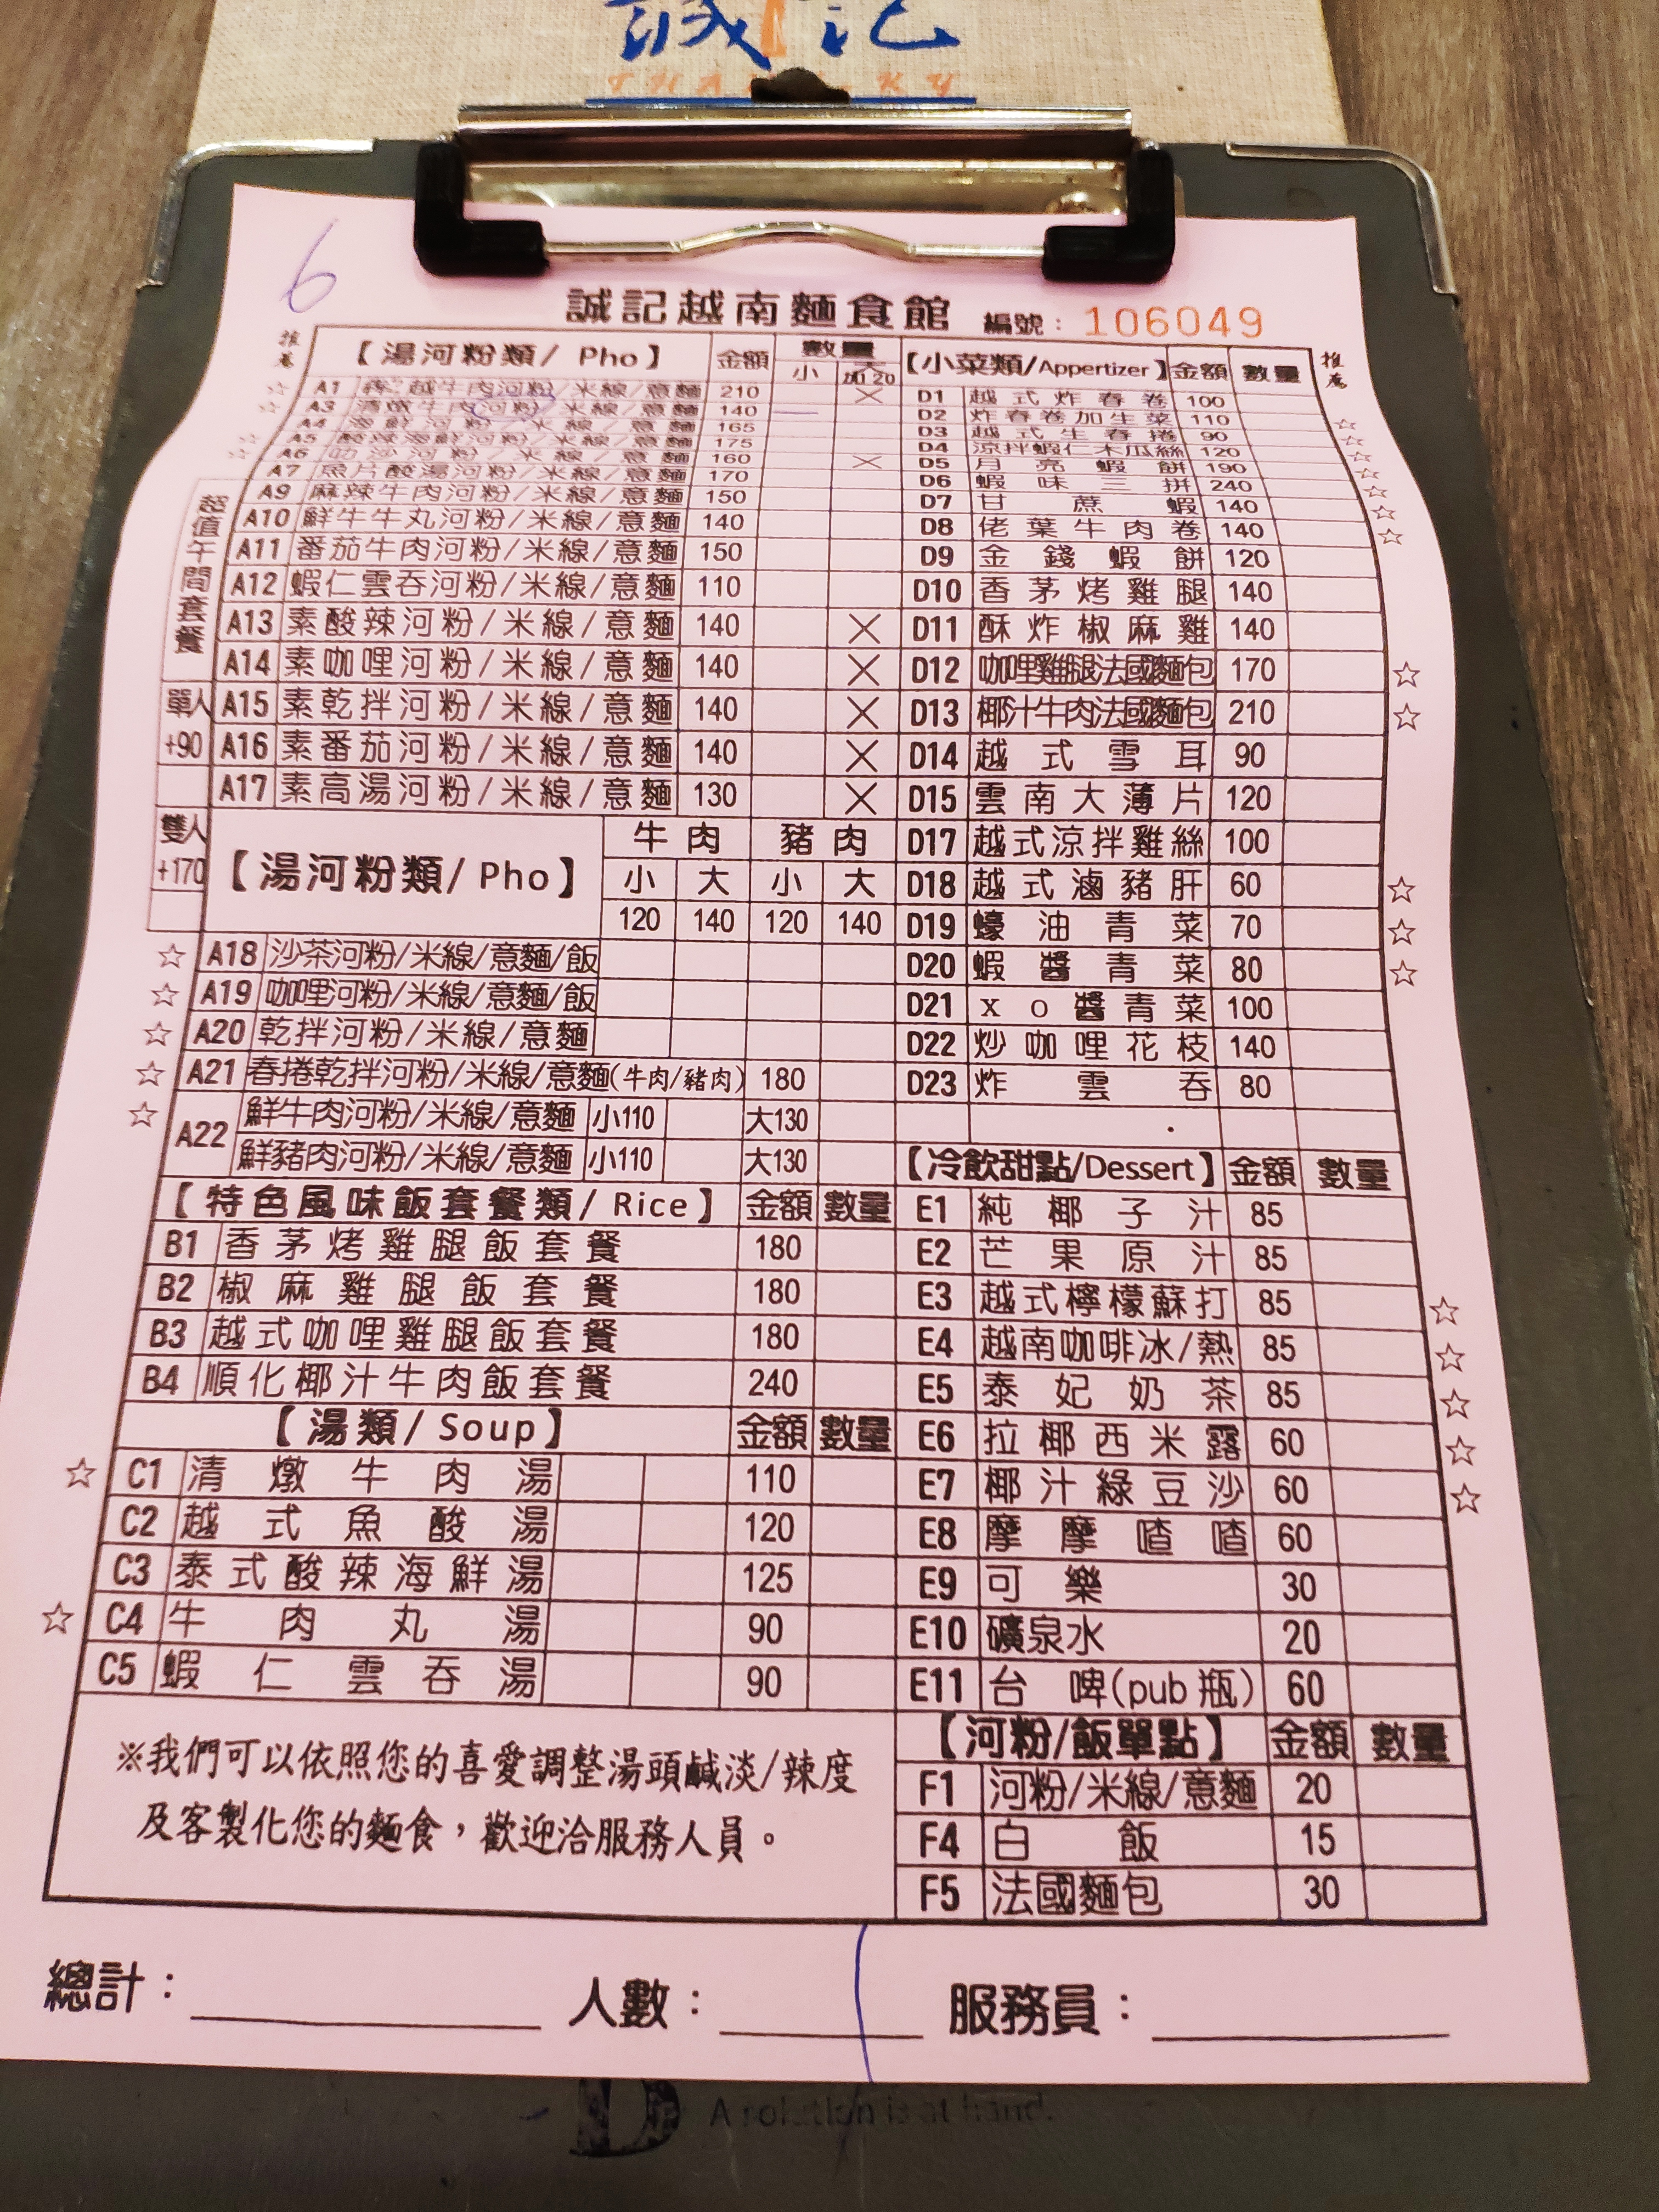 誠記
THANH KY
6
誠記越南麵食館 編號: 106049
推薦
【湯河粉類/ Pho】 金額 數量 小 大加20
A1 越牛肉河粉/米線/意麵 210
A3 清燉牛肉河粉/米線/意麵 140
A4 海鮮河粉/米線/意麵 165
A5 酸辣海鮮河粉/米線/意麵 175
A6 叻沙河粉/米線/意麵 160
A7 魚片酸湯河粉/米線/意麵 170
A9 麻辣牛肉河粉/米線/意麵 150
A10 鮮牛牛丸河粉/米線/意麵 140
A11 番茄牛肉河粉/米線/意麵 150
A12 蝦仁雲吞河粉/米線/意麵 110
A13 素酸辣河粉/米線/意麵 140
A14 素咖哩河粉/米線/意麵 140
A15 素乾拌河粉/米線/意麵 140
A16 素番茄河粉/米線/意麵 140
A17 素高湯河粉/米線/意麵 130
超值午間套餐
單人
+90
雙人
+170
【湯河粉類/ Pho】
牛肉 豬肉
小 大 小 大
120 140 120 140
☆ A18 沙茶河粉/米線/意麵/飯
☆ A19 咖哩河粉/米線/意麵/飯
☆ A20 乾拌河粉/米線/意麵
☆ A21 春捲乾拌河粉/米線/意麵(牛肉/豬肉) 180
☆ A22 鮮牛肉河粉/米線/意麵 小110 大130
鮮豬肉河粉/米線/意麵 小110 大130
【特色風味飯套餐類/ Rice】 金額 數量
B1 香茅烤雞腿飯套餐 180
B2 椒麻雞腿飯套餐 180
B3 越式咖哩雞腿飯套餐 180
B4 順化椰汁牛肉飯套餐 240
【湯類/ Soup】 金額 數量
☆ C1 清燉牛肉湯 110
C2 越式魚酸湯 120
C3 泰式酸辣海鮮湯 125
☆ C4 牛肉丸湯 90
C5 蝦仁雲吞湯 90
※我們可以依照您的喜愛調整湯頭鹹淡/辣度
及客製化您的麵食，歡迎洽服務人員。
【小菜類/Appertizer】 金額 數量
推薦
D1 越式炸春卷 100
D2 炸春卷加生菜 110
D3 越式生春捲 90
D4 涼拌蝦仁木瓜絲 120
D5 月亮蝦餅 190
D6 蝦味三拼 240
D7 甘蔗蝦 140
D8 佬葉牛肉卷 140
D9 金錢蝦餅 120
D10 香茅烤雞腿 140
D11 酥炸椒麻雞 140
D12 咖哩雞腿法國麵包 170 ☆
D13 椰汁牛肉法國麵包 210 ☆
D14 越式雪耳 90
D15 雲南大薄片 120
D17 越式涼拌雞絲 100
D18 越式滷豬肝 60 ☆
D19 蠔油青菜 70 ☆
D20 蝦醬青菜 80 ☆
D21 xo醬青菜 100
D22 炒咖哩花枝 140
D23 炸雲吞 80
【冷飲甜點/Dessert】 金額 數量
E1 純椰子汁 85
E2 芒果原汁 85
E3 越式檸檬蘇打 85 ☆
E4 越南咖啡冰/熱 85 ☆
E5 泰妃奶茶 85 ☆
E6 拉椰西米露 60 ☆
E7 椰汁綠豆沙 60 ☆
E8 摩摩喳喳 60
E9 可樂 30
E10 礦泉水 20
E11 台啤(pub瓶) 60
【河粉/飯單點】 金額 數量
F1 河粉/米線/意麵 20
F4 白飯 15
F5 法國麵包 30
總計: 人數: 服務員:
A solution is at hand.